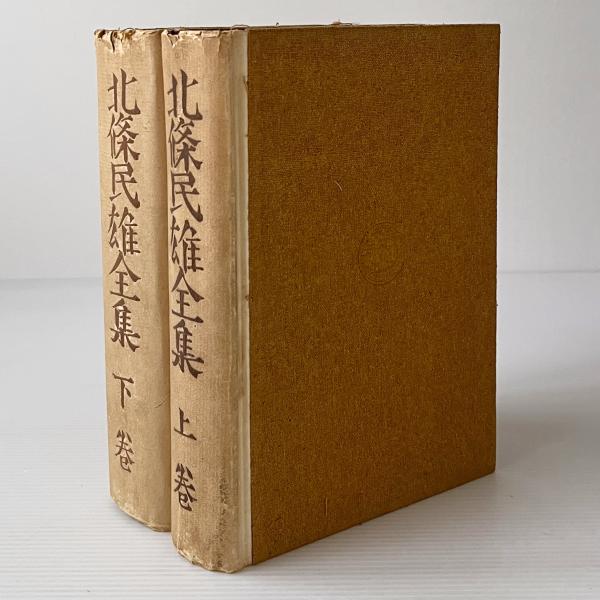 北條民雄全集 上巻
北條民雄全集 下巻